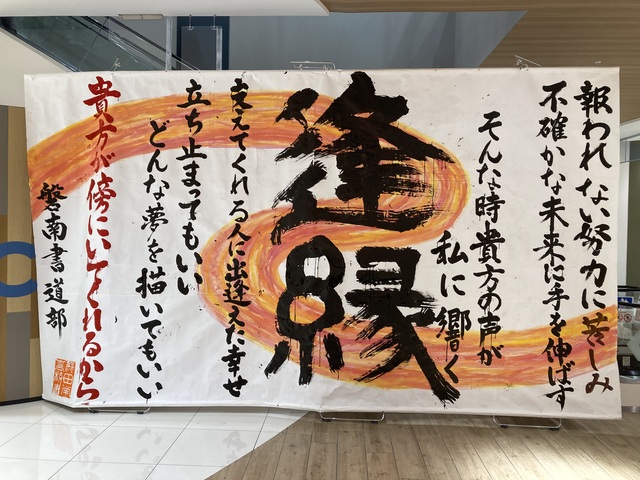 報われない努力に苦しみ
不確かな未来に手を伸ばす
そんな時貴方の声が
私に響く
逢縁
支えてくれる人に出逢えた幸せ
立ち止まってもいい
どんな夢を描いてもいい
貴方が傍にいてくれるから
磐南書道部